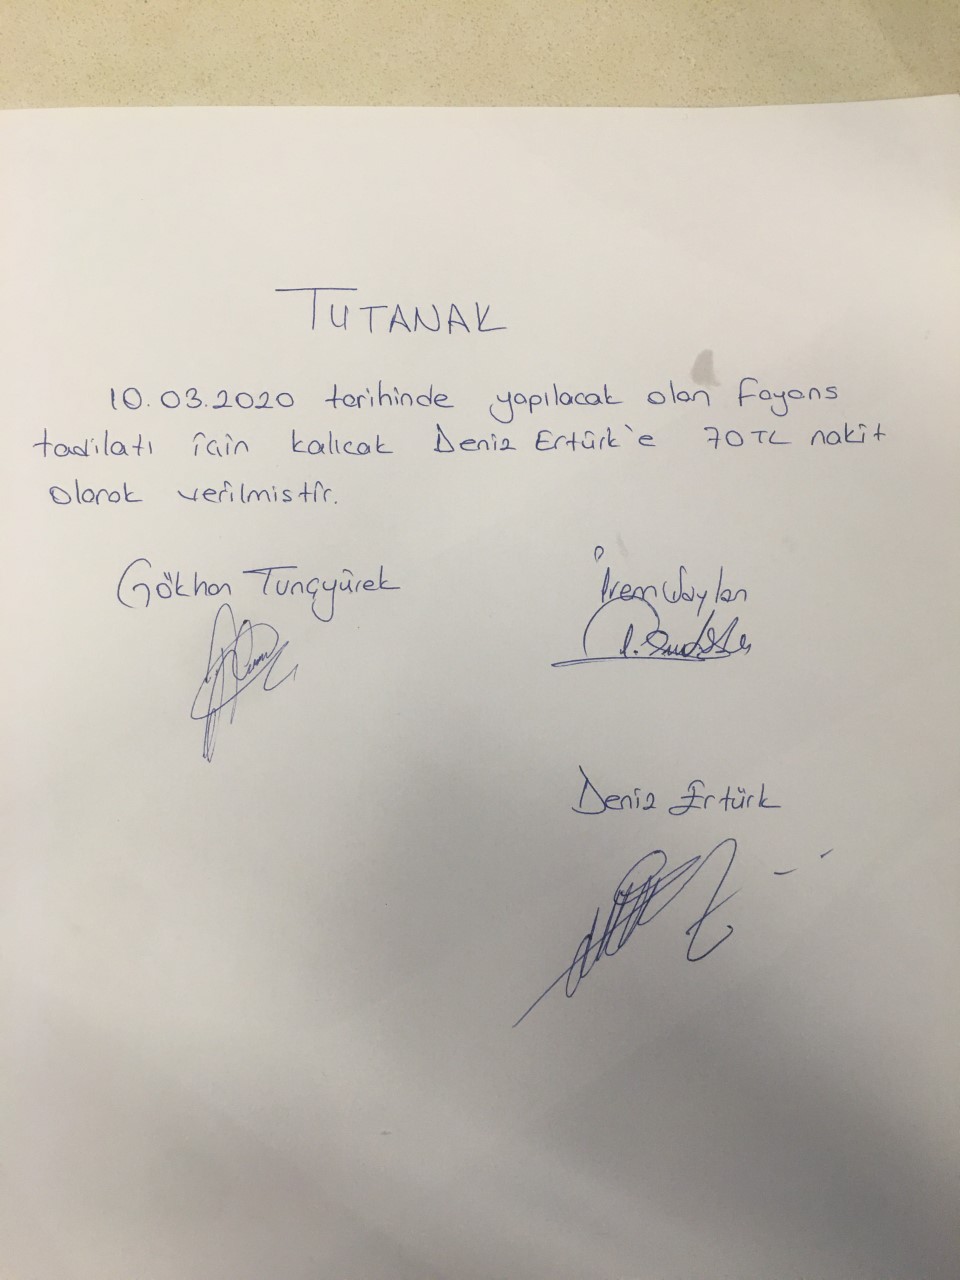 TUTANAK
10.03.2020 tarihinde yapılacak olan fayans
tadilatı için kalıcak Deniz Ertürk'e 70 TL nakit
olarak verilmiştir.
Gökhan Tunçyürek
İrem
Deniz Ertürk